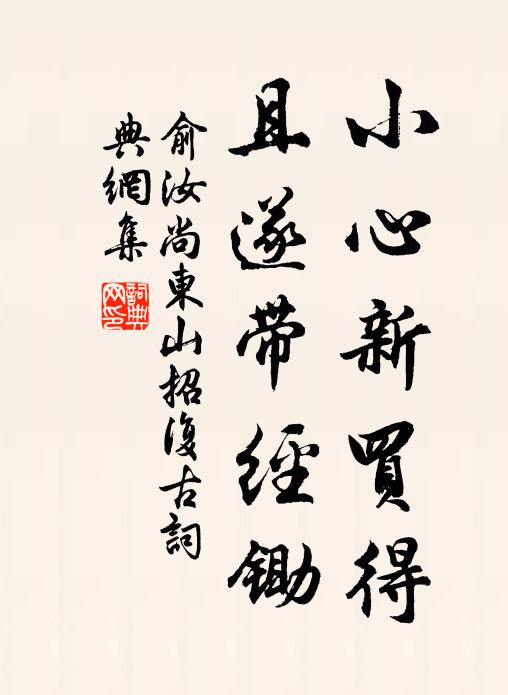 小心新買得
且遂帶經鋤
俞汝尚東山招復古詞
典網集
詞典網印